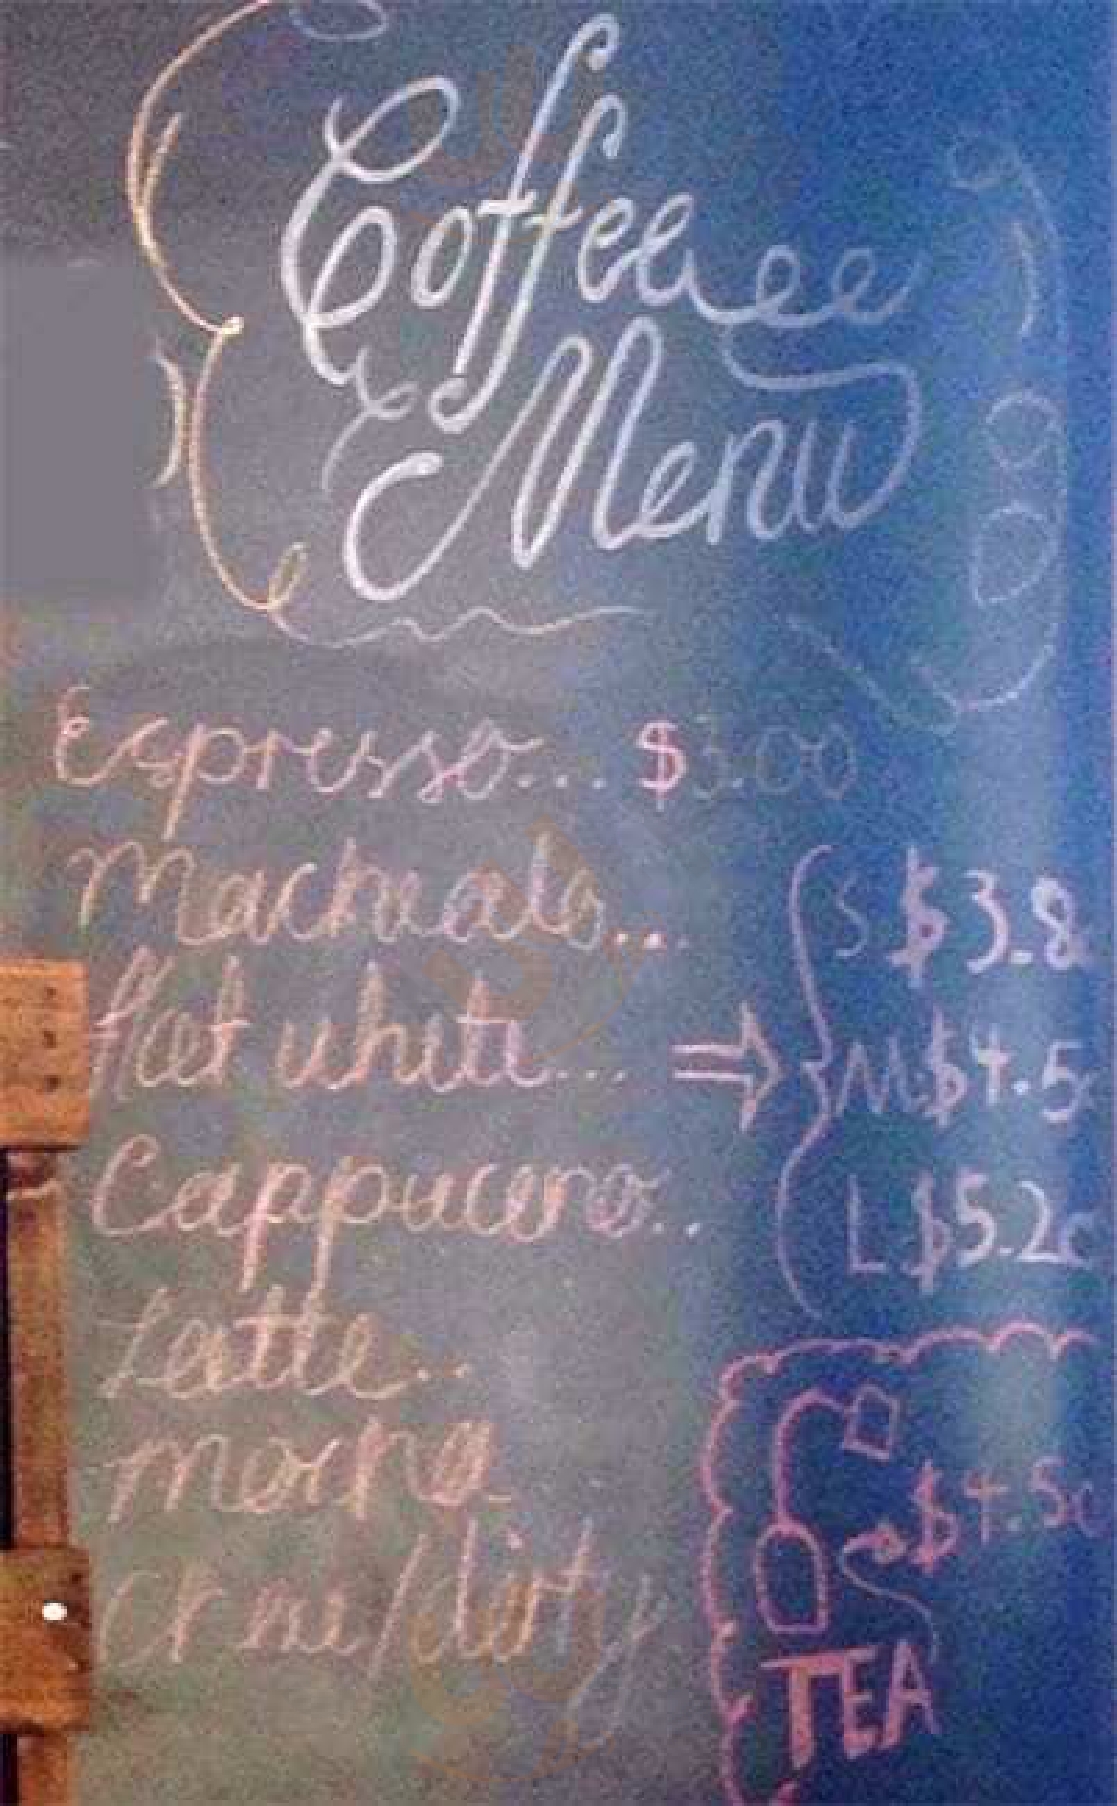 Coffee
Menu
Espresso... $3.00
Macheato...
flat white...
Cappuccino..
Latte..
mocha
/dirty
S $3.8
M $4.5
L $5.2
$4.5
TEA